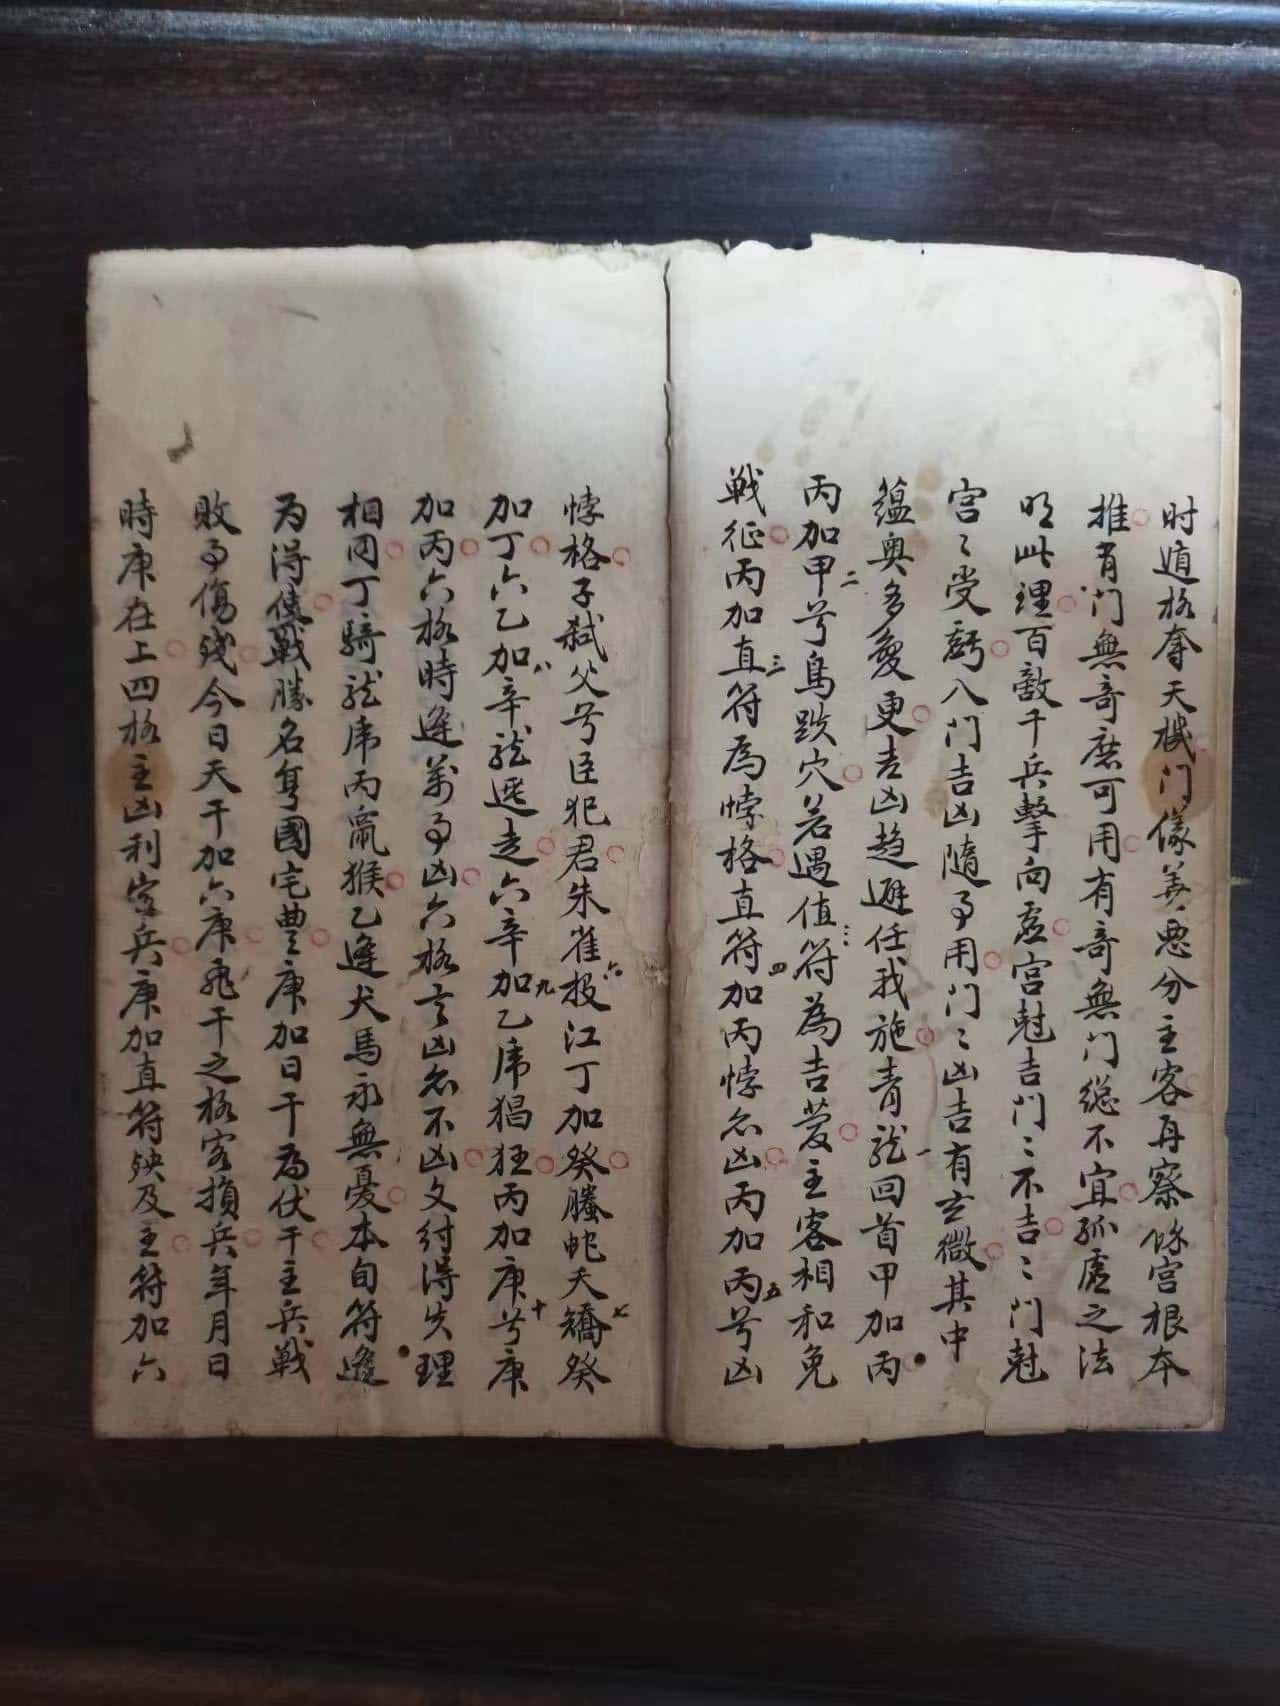 时遁格夺天機门儀善悪分主客再察條宫根本
推有门無竒庶可用有竒無门總不宜孤虚之法
明此理百敵千兵擊向虚宫尅吉门〻不吉〻门尅
宫〻受虧八门吉凶隨事用门〻凶吉有玄微其中
蕴奥多變更吉凶趋避任我施青龍回首甲加丙
丙加甲兮鳥跌穴若遇值符為吉荣主客相和免
戦征丙加直符為悖格直符加丙悖为凶丙加丙兮凶
悖格子弑父兮臣犯君朱雀投江丁加癸螣蛇夭矯癸
加丁六乙加辛龍逃走六辛加乙虎猖狂丙加庚兮庚
加丙六格時逢萬事凶六格言凶為不凶文付得失理
相同丁騎龍虎丙鼠猴乙逢犬馬永無憂本旬符遁
为得使戰勝名身國宅豊庚加日干為伏干主兵戦
敗事傷残今日天干加六庚飛干之格客損兵年月日
時庚在上四格主凶利客兵庚加直符殃及主符加六
一
二
三
四
五
六
七
八
九
十